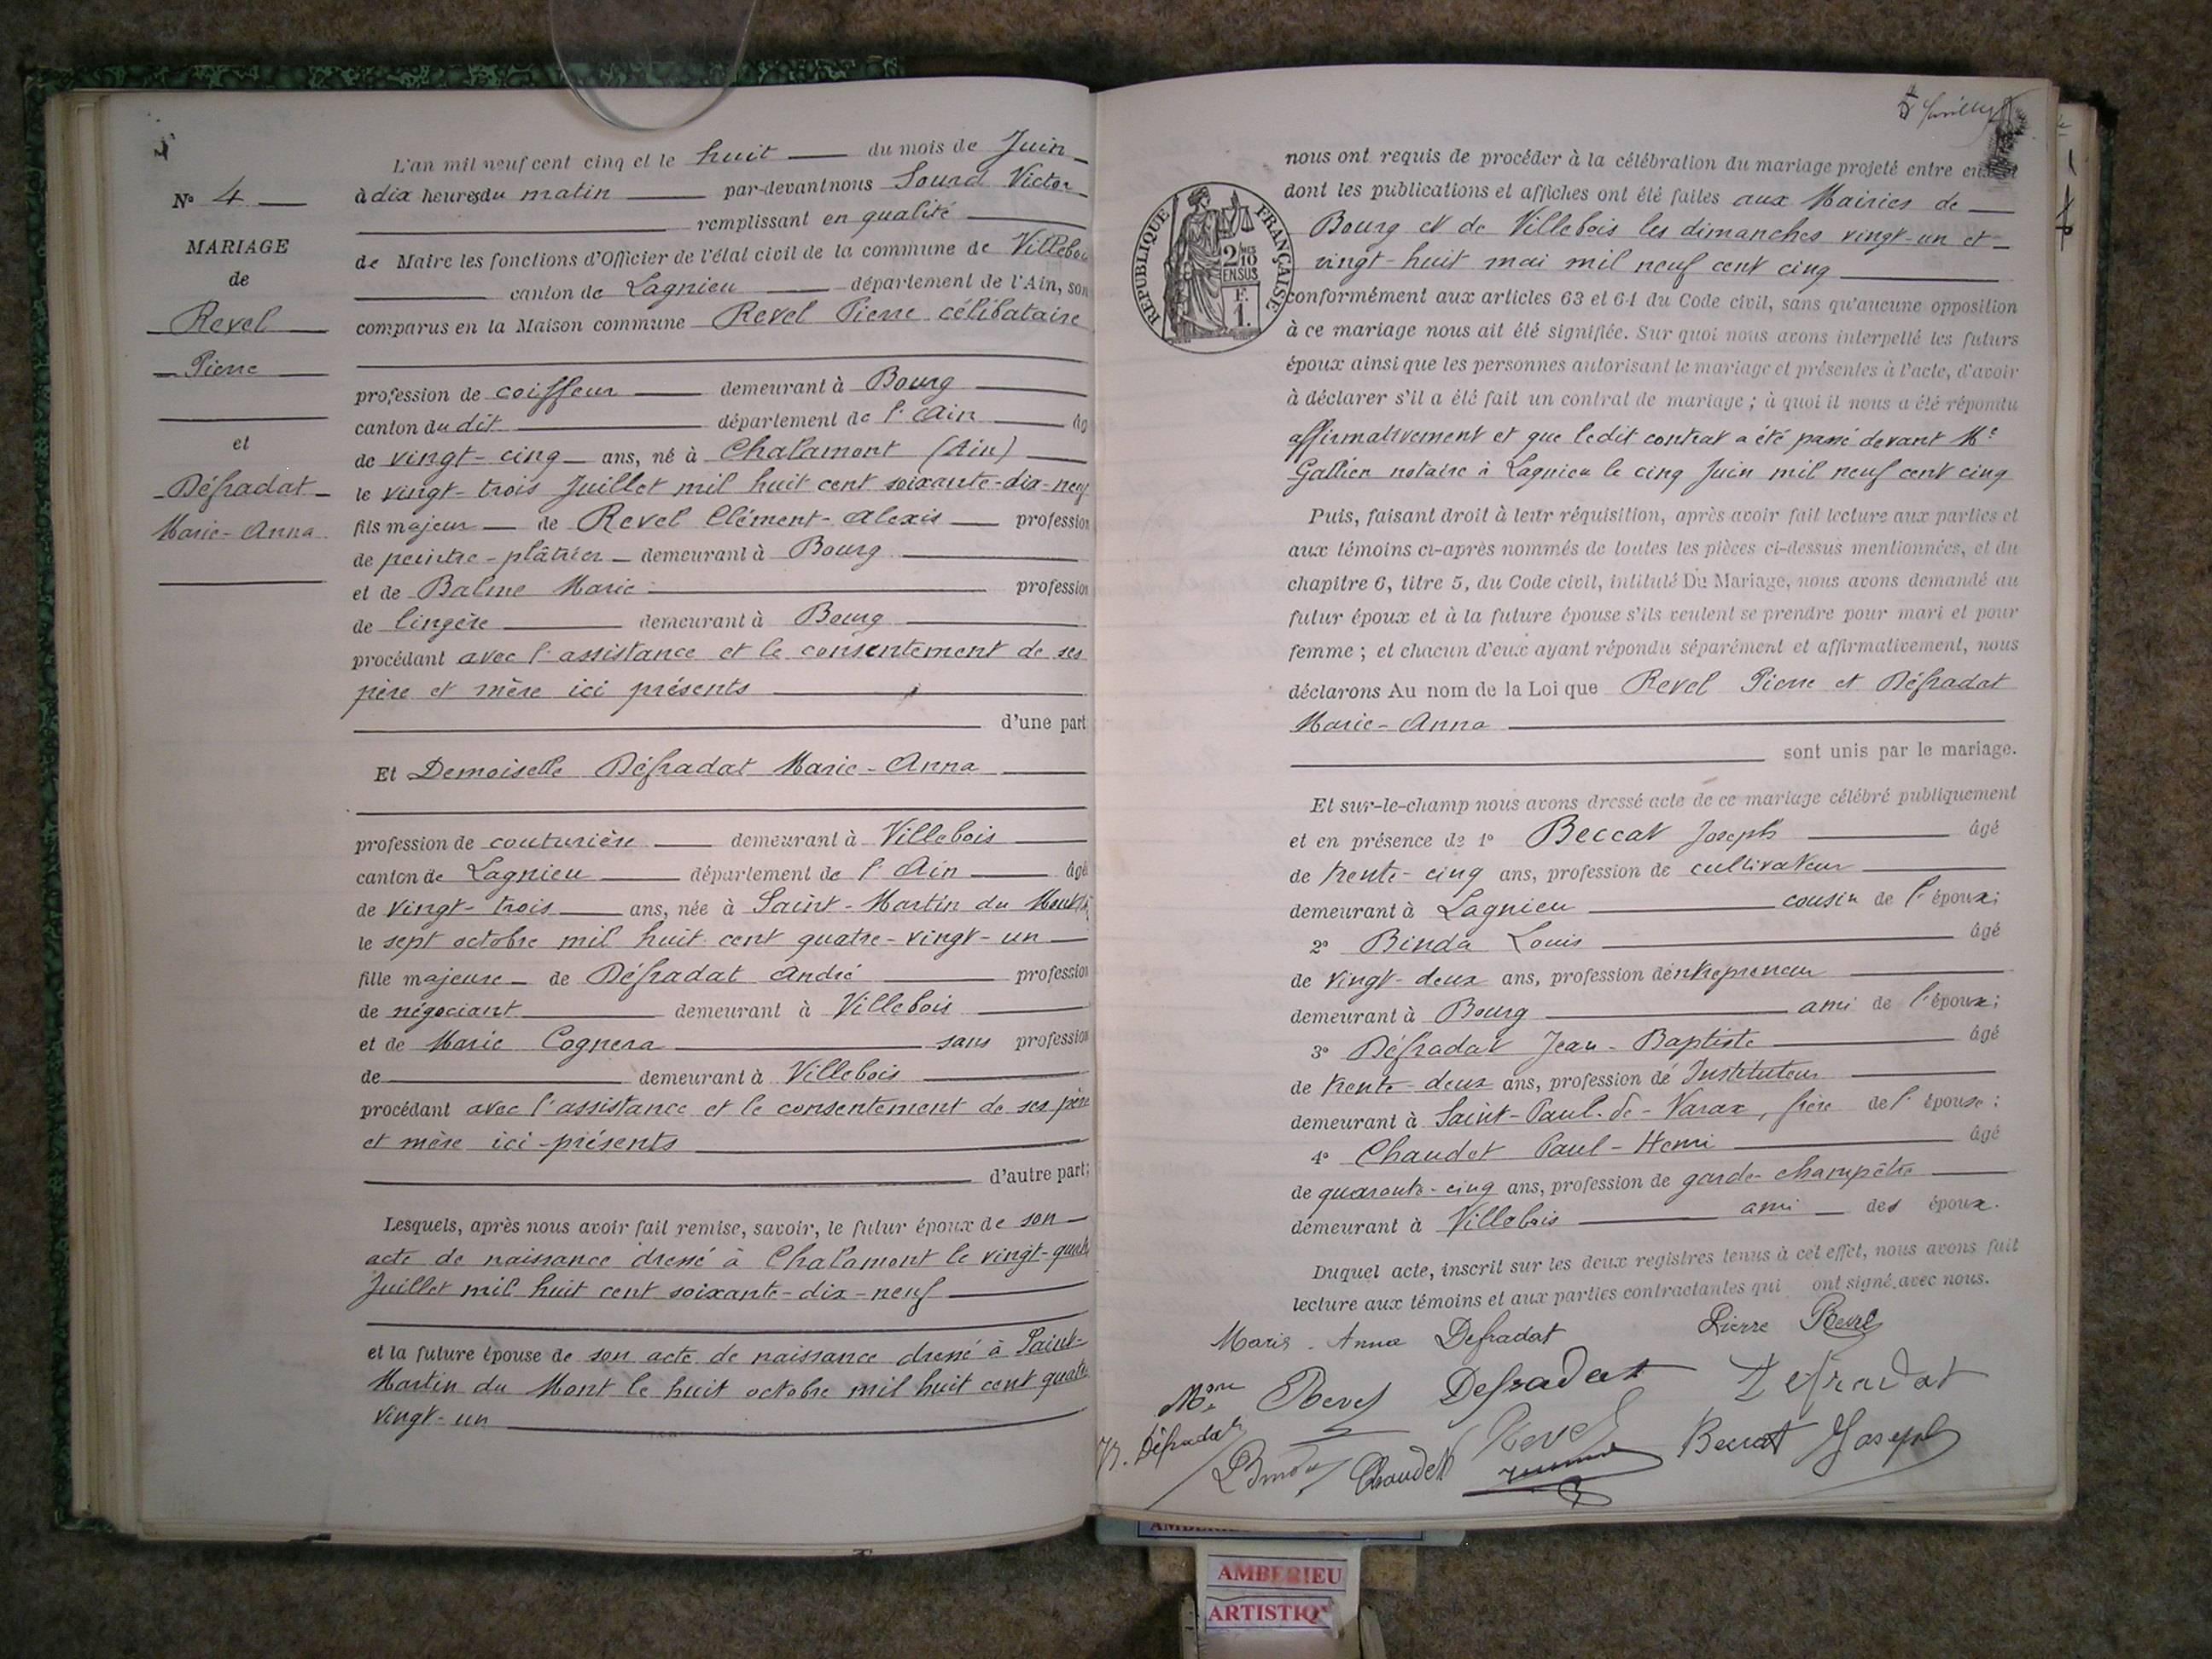 L'an mil neuf cent cinq et le huit du mois de Juin
à dix heures du matin par-devant nous Sourd Victor
remplissant en qualité
de Maire les fonctions d'Officier de l'état civil de la commune de Villebois
canton de Lagnieu département de l'Ain, son
comparus en la Maison commune Revel Pierre célibataire
profession de coiffeur demeurant à Bourg
canton du dit département de l'Ain âg
de vingt-cinq ans, né à Chalamont (Ain)
le vingt-trois Juillet mil huit cent soixante-dix-neuf
fils majeur de Revel Clément-Alexis profession
de peintre-plâtrier demeurant à Bourg
et de Balme Marie profession
de lingère demeurant à Bourg
procédant avec l'assistance et le consentement de ses
père et mère ici présents
d'une part
Et Demoiselle Défradat Marie-Anna
profession de couturière demeurant à Villebois
canton de Lagnieu département de l'Ain âgé
de vingt-trois ans, née à Saint-Martin du Mont
le sept octobre mil huit cent quatre-vingt-un
fille majeure de Défradat André profession
de négociant demeurant à Villebois
et de Marie Cognera sans profession
de demeurant à Villebois
procédant avec l'assistance et le consentement de ses père
et mère ici-présents
d'autre part;
Lesquels, après nous avoir fait remise, savoir, le futur époux de son
acte de naissance dressé à Chalamont le vingt-quatre
Juillet mil huit cent soixante-dix-neuf
et la future épouse de son acte de naissance dressé à Saint-
Martin du Mont le huit octobre mil huit cent quatre
vingt-un
No 4
MARIAGE
de
Revel
Pierre
et
Défradat
Marie-Anna
nous ont requis de procéder à la célébration du mariage projeté entre eux et
dont les publications et affiches ont été faites aux Mairies de
Bourg et de Villebois les dimanches vingt-un et
vingt-huit mai mil neuf cent cinq
conformément aux articles 63 et 64 du Code civil, sans qu'aucune opposition
à ce mariage nous ait été signifiée. Sur quoi nous avons interpellé les futurs
époux ainsi que les personnes autorisant le mariage et présentes à l'acte, d'avoir
à déclarer s'il a été fait un contrat de mariage; à quoi il nous a été répondu
affirmativement et que ledit contrat a été passé devant Me
Gallien notaire à Lagnieu le cinq Juin mil neuf cent cinq
Puis, faisant droit à leur réquisition, après avoir fait lecture aux parties et
aux témoins ci-après nommés de toutes les pièces ci-dessus mentionnées, et du
chapitre 6, titre 5, du Code civil, intitulé Du Mariage, nous avons demandé au
futur époux et à la future épouse s'ils veulent se prendre pour mari et pour
femme; et chacun d'eux ayant répondu séparément et affirmativement, nous
déclarons Au nom de la Loi que Revel Pierre et Défradat
Marie-Anna
sont unis par le mariage.
Et sur-le-champ nous avons dressé acte de ce mariage célébré publiquement
et en présence de 1° Beccat Joseph âgé
de trente-cinq ans, profession de cultivateur
demeurant à Lagnieu cousin de l'époux;
2° Binda Louis âgé
de vingt-deux ans, profession d'entrepreneur
demeurant à Bourg ami de l'époux;
3° Défradat Jean-Baptiste âgé
de trente-deux ans, profession de Instituteur
demeurant à Saint-Paul-de-Varax, frère de l'épouse;
4° Chaudet Paul-Henri âgé
de quarante-cinq ans, profession de garde-champêtre
demeurant à Villebois ami des époux.
Duquel acte, inscrit sur les deux registres tenus à cet effet, nous avons fait
lecture aux témoins et aux parties contractantes qui ont signé avec nous.
Marie-Anna Defradat Pierre Revel
Mme Revel Defradat Defradat
Défradat Chaudet Revel Beccat Joseph
RÉPUBLIQUE FRANÇAISE
2/10 EN SUS
F. 1.
AMBERIEU
ARTISTIQ